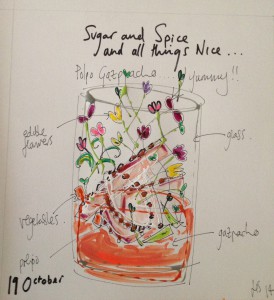 Sugar and Spice
and all things Nice...
Polpo Gazpacho ... yummy!!
edible
flowers
glass.
vegetables
gazpacho
polpo
19 October